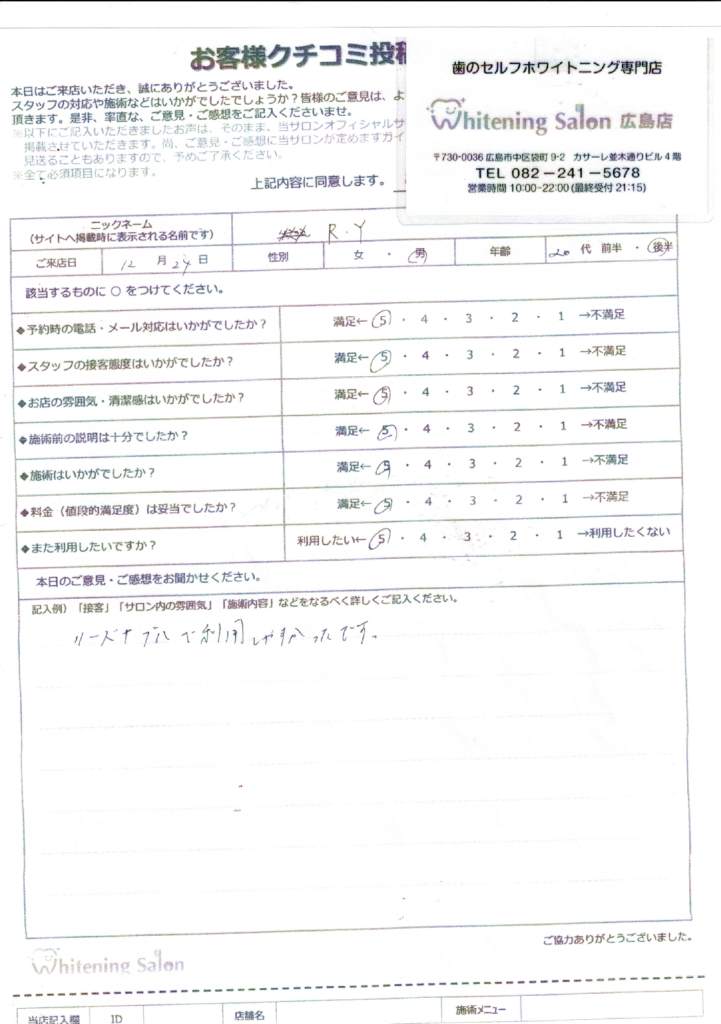 お客様クチコミ投稿
本日はご来店いただき、誠にありがとうございました。
スタッフの対応や施術などはいかがでしたでしょうか?皆様のご意見は、よ
頂きます。是非、率直な、ご意見・ご感想をご記入くださいませ。
※以下にご記入いただきましたお声は、そのまま、当サロンオフィシャルサ
掲載させていただきます。尚、ご意見・ご感想に当サロンが定めますガイ
見送ることもありますので、予めご了承ください。
※全て必須項目になります。
上記内容に同意します。
歯のセルフホワイトニング専門店
Whitening Salon 広島店
〒730-0036 広島市中区袋町 9-2 カサーレ並木通りビル 4 階
TEL 082-241-5678
営業時間 10:00-22:00 (最終受付 21:15)
ニックネーム
(サイトへ掲載時に表示される名前です)
R.Y
ご来店日 12 月 24 日 性別 女 ・ 男 年齢 20 代 前半 ・ 後半
該当するものに ○ をつけてください。
◆予約時の電話・メール対応はいかがでしたか? 満足← 5 ・ 4 ・ 3 ・ 2 ・ 1 →不満足
◆スタッフの接客態度はいかがでしたか? 満足← 5 ・ 4 ・ 3 ・ 2 ・ 1 →不満足
◆お店の雰囲気・清潔感はいかがでしたか? 満足← 5 ・ 4 ・ 3 ・ 2 ・ 1 →不満足
◆施術前の説明は十分でしたか? 満足← 5 ・ 4 ・ 3 ・ 2 ・ 1 →不満足
◆施術はいかがでしたか? 満足← 5 ・ 4 ・ 3 ・ 2 ・ 1 →不満足
◆料金(値段的満足度)は妥当でしたか? 満足← 5 ・ 4 ・ 3 ・ 2 ・ 1 →不満足
◆また利用したいですか? 利用したい← 5 ・ 4 ・ 3 ・ 2 ・ 1 →利用したくない
本日のご意見・ご感想をお聞かせください。
記入例)「接客」「サロン内の雰囲気」「施術内容」などをなるべく詳しくご記入ください。
リーズナブルで利用しやすかったです。
ご協力ありがとうございました。
Whitening Salon
当店記入欄 ID 店舗名 施術メニュー